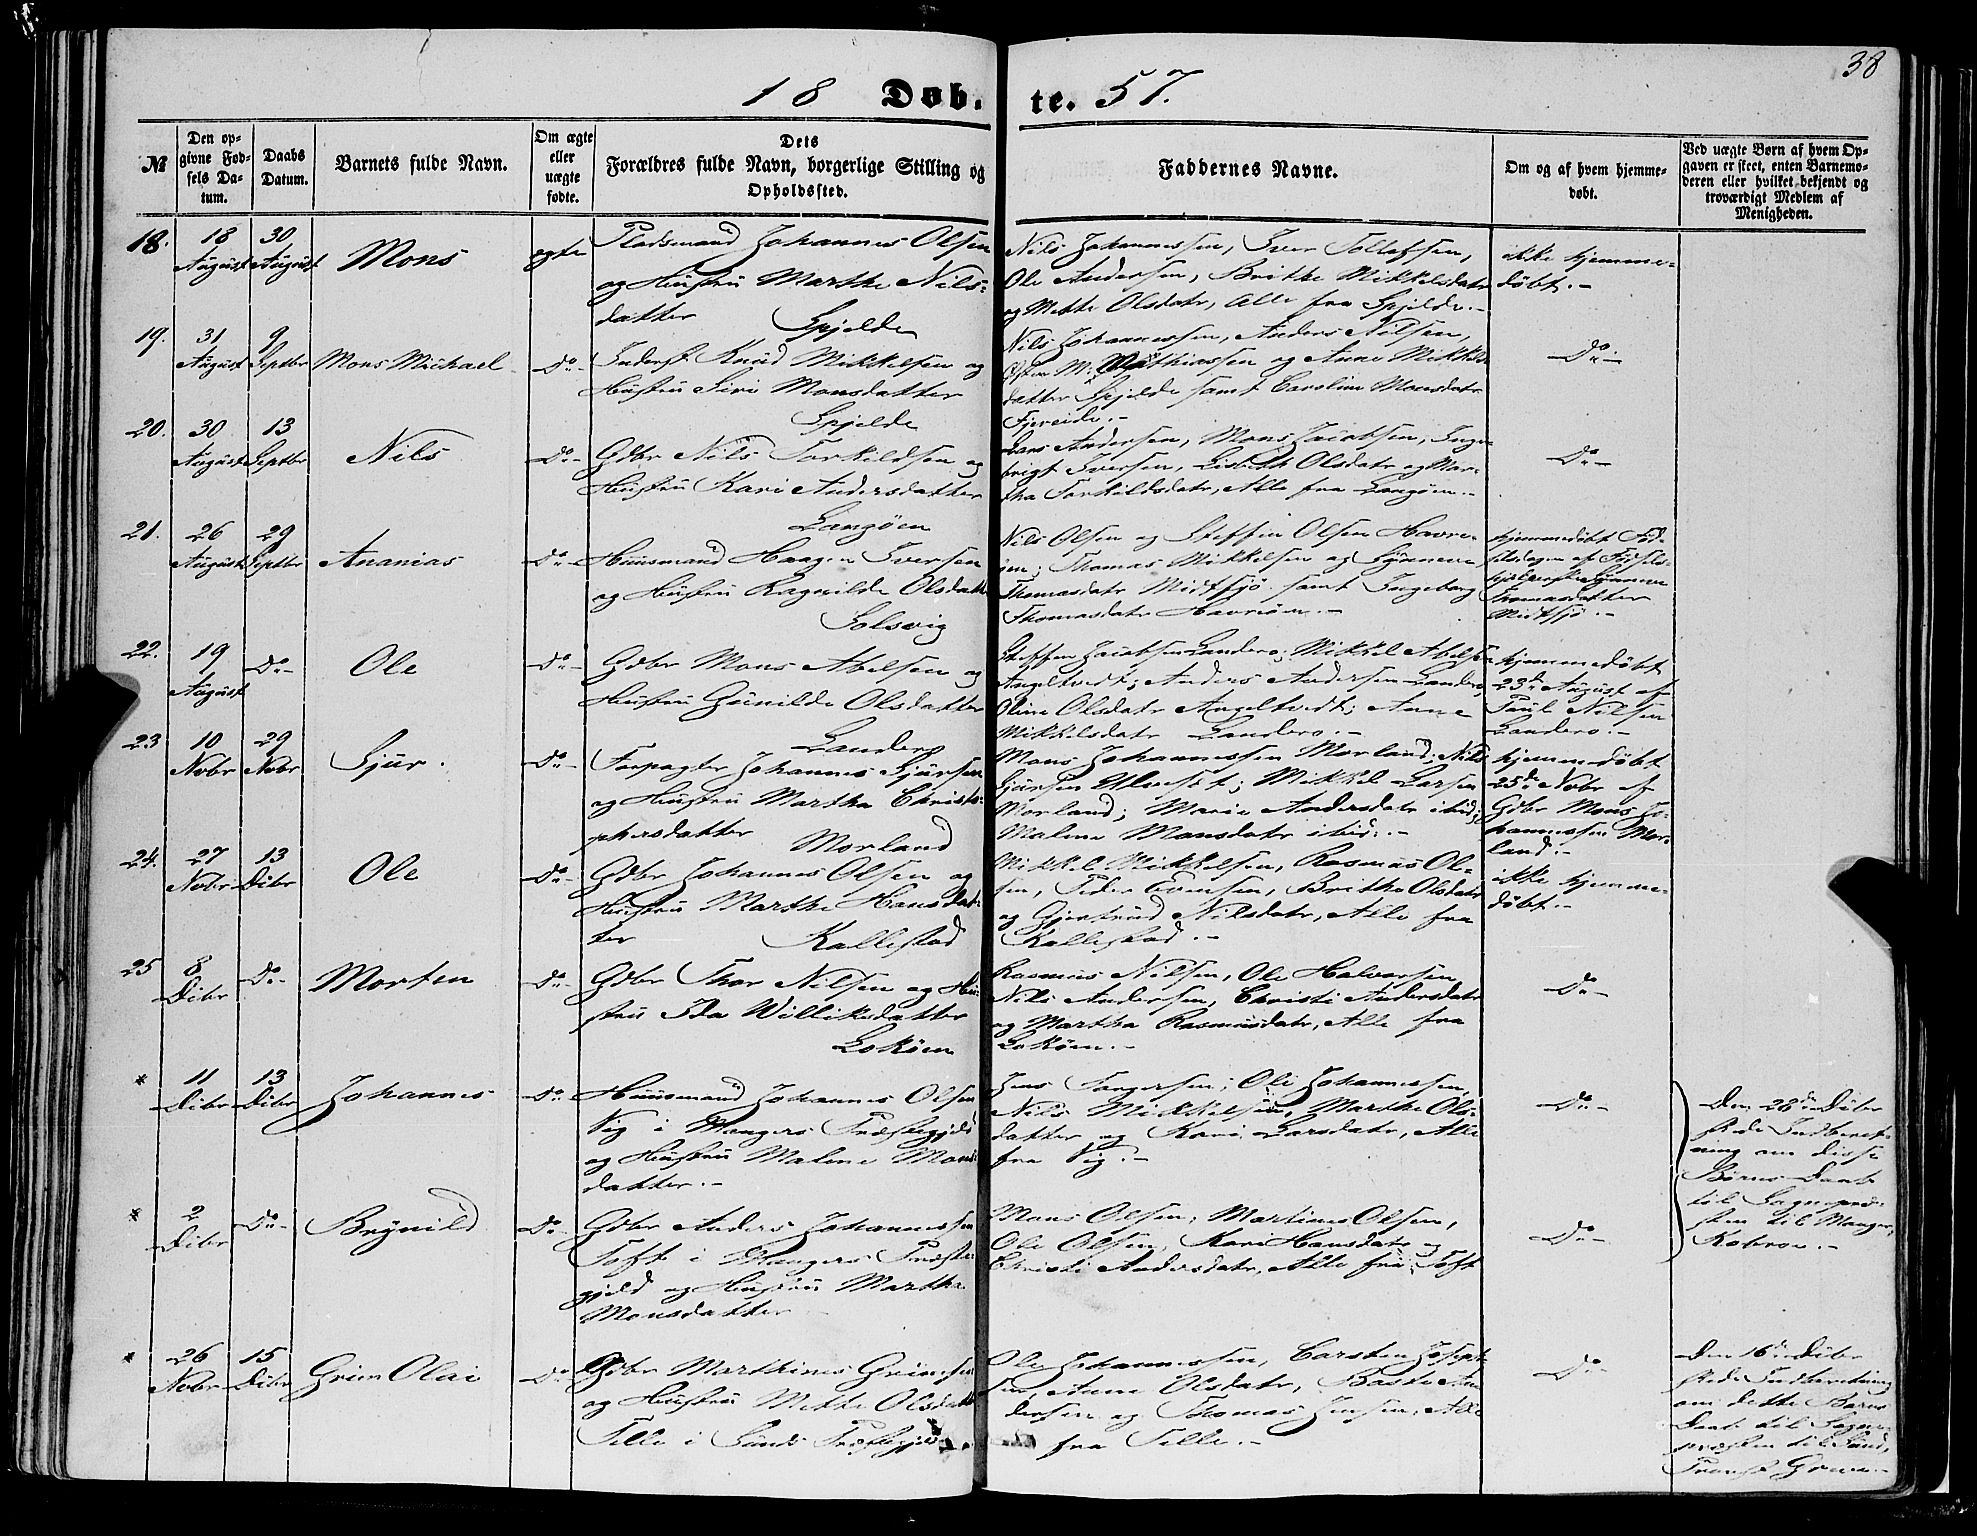 38
18 Døb. te. 57.
№
Den opgivne Fødsels Datum.
Daabs Datum.
Barnets fulde Navn.
Om ægte eller uægte fødte.
Dets Forældres fulde Navn, borgerlige Stilling og Opholdssted.
Faddernes Navne.
Om og af hvem hjemmedøbt.
Ved uægte Børn af hvem Opgaven er skeet, enten Barnemoderen eller hvilket bekjendt og troværdigt Medlem af Menigheden.
18.
18 August
30 August
Mons
egte
Pladsmand Johannes Olsen
og Hustru Marthe Nils-
datter Spjelde
Nils Johannessen, Iver Tollefsen,
Ole Andersen, Brithe Mikkelsdatr
og Mette Olsdatr, Alle fra Spjelde.-
ikke hjemme-
døbt.-
19.
31 August
9 Septbr
Mons Michael
Do-
Inderst Knud Mikkelsen og
Hustru Siri Monsdatter
Spjelde
Nils Johannessen, Anders Nilsen,
Mathiassen og Anne Mikkels
datter Spjelde samt Caroline Monsdatr
Fjereide.-
Do-
20.
30 August
13 Septbr
Nils
Do-
Gdbr Nils Torkildsen og
Hustru Kari Andersdatter
Langøen
Lars Andersen, Mons Jacobsen, Inge-
brigt Iversen, Lisbeth Olsdatr og Mar-
tha Torkildsdatr, Alle fra Langøen.-
Do-
21.
26 August
29 Septbr
Ananias
Do-
Huusmand Haagen Iversen
og Hustru Ragnilde Olsdatt
Solsvig
Nils Olsen og Steffen Olsen Havre-
øen; Thomas Mikkelsen og Synneve
Thomasdatr Midtsjø samt Ingeborg
Thomasdatr Havreøen.-
hjemmedøbt Fød-
selsdagen af Fødsels-
hjælpersken Synneve
Thomasdatter
Midtsjø.-
22.
19 August
Do-
Ole
Do-
Gdbr Mons Abelsen og
Hustru Gunilde Olsdatter
Landero
Steffen Jacobsen Landero; Mikkel Abelsen
Angeltvedt; Anders Andersen Landero,
Oline Olsdatr Angeltvedt; Anne
Mikkelsdatr Landero.-
hjemmedøbt
23de August af
Paul Nilsen
Landero.-
23
10 Novbr
29 Novbr
Sjur.
Do-
Forpagter Johannes Sjursen
og Hustru Martha Christo-
phersdatter Morland
Mons Johannessen Morland; Nils
Sjursen Ulveset; Mikkel Larsen
Morland; Marie Andersdatr ibid;
Malene Monsdatr ibid:.-
hjemmedøbt
25de Novbr af
Gdbr Mons Jo-
hannessen Mor-
land.-
24.
27 Novbr
13 Dcbr
Ole
Do-
Gdbr Johannes Olsen og
Hustru Marthe Hansdat-
ter Kallestad
Mikkel Mikkelsen, Rasmus Ol-
sen, Peder Evensen, Britha Olsdatr
og Gjertrud Nilsdatr, Alle fra
Kallestad.-
ikke hjemme-
døbt.-
25
8 Dcbr
Do-
Morten
Do-
Gdbr Thor Nilsen og Hu-
stru Ida Williksdatter
Lokøen
Rasmus Nilsen, Ole Halvorsen,
Nils Andersen, Christi Andersdatr
og Martha Rasmusdatr, Alle fra
Lokøen.-
Do-
*
11 Dcbr
13 Dcbr
Johannes
Do-
Huusmand Johannes Olsen
Vig i Mangers Præstegjeld
og Hustru Malene Mons-
datter.-
Jens Torgersen; Ole Johannessen,
Nils Mikkelsen, Marthe Ols-
datter og Kari Larsdatr, Alle
fra Vig.-
Do-
Den 28de Dcbr
skede Indberet-
ning om disse
Børns Daab
til Sognepræ-
sten til Manger,
Kobroe.-
*
2 Dcbr
Do-
Brynild
Do-
Gdbr Anders Johannessen
Toft i Mangers Præste-
gjeld og Hustru Martha
Monsdatter
Mons Olsen, Martines Olsen,
Ole Olsen, Kari Hansdatr og
Christi Andersdatr, Alle fra Toft
Do-
*
26 Novbr
15 Dcbr
Grim Olai
Do
Gdbr Marthines Grimsen
og Hustru Mette Olsdatt
Telle i Sunds Præstegjeld
Ole Johannessen, Carsten Joseph-
sen, Anne Olsdatr, An-
dersen og Thomas Jensen, Alle
fra Telle.-
Do-
Den 16de Dcbr
skede Indberetning
om dette Barns
Daab til Sogne-
præsten til Sund,
Greve.-